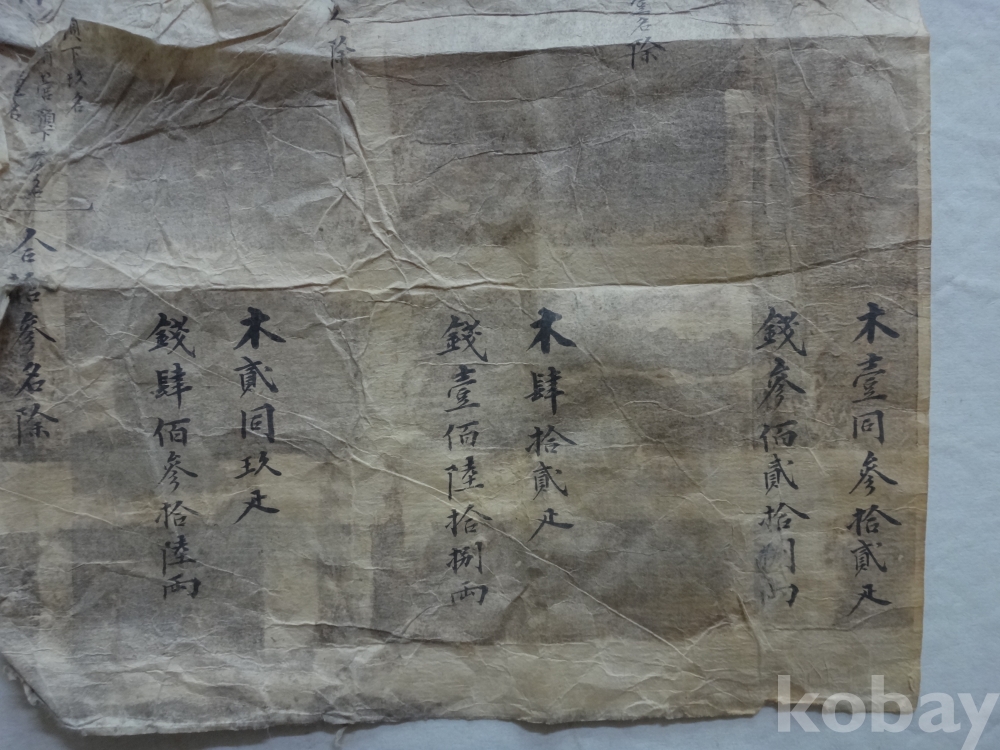 木壹同參拾貳疋
錢參佰貳拾捌兩
名除
木肆拾貳疋
錢壹佰陸拾捌兩
除
木貳同玖疋
錢肆佰參拾陸兩
下玖名
合拾參名除
kobay